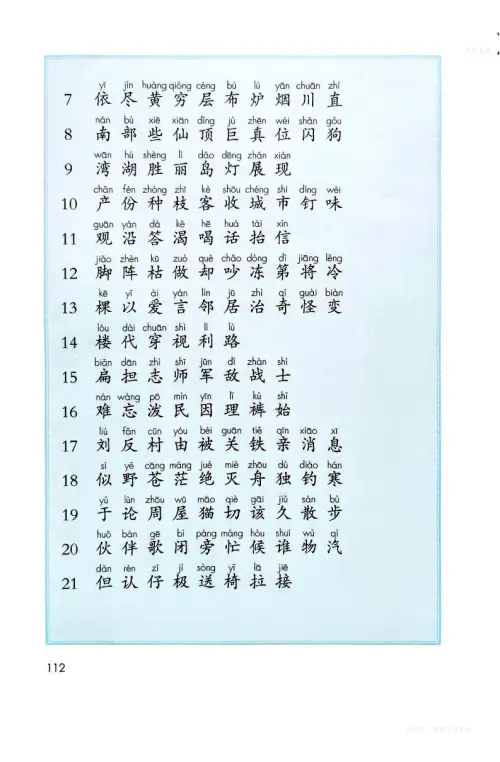 yī jìn huáng qióng céng bù lú yān chuān zhí
7 依 尽 黄 穷 层 布 炉 烟 川 直
nán bù xiē xiān dǐng jù zhēn wèi shǎn gǒu
8 南 部 些 仙 顶 巨 真 位 闪 狗
wān hú shèng lì dǎo dēng zhǎn xiàn
9 湾 湖 胜 丽 岛 灯 展 现
chǎn fèn zhǒng zhī kè shōu chéng shì dīng wèi
10 产 份 种 枝 客 收 城 市 钉 味
guān yán dá kě hē huà tái xìn
11 观 沿 答 渴 喝 话 抬 信
jiǎo zhèn kū zuò què chǎo dòng dì jiāng lěng
12 脚 阵 枯 做 却 吵 冻 第 将 冷
kē yǐ ài yán lín jū zhì qí guài biàn
13 棵 以 爱 言 邻 居 治 奇 怪 变
lóu dài chuān shì lì lù
14 楼 代 穿 视 利 路
biǎn dān zhì shī jūn dí zhàn shì
15 扁 担 志 师 军 敌 战 士
nán wàng pō mín yīn lǐ kù shǐ
16 难 忘 泼 民 因 理 裤 始
liú fǎn cūn yóu bèi guān tiě qīn xiāo xī
17 刘 反 村 由 被 关 铁 亲 消 息
sì yě cāng máng jué miè zhōu dú diào hán
18 似 野 苍 茫 绝 灭 舟 独 钓 寒
yú lùn zhōu wū māo qiè gāi jiǔ sàn bù
19 于 论 周 屋 猫 切 该 久 散 步
huǒ bàn gē bì páng máng hòu shuí wù qì
20 伙 伴 歌 闭 旁 忙 候 谁 物 汽
dàn rèn zǐ jí sòng yǐ lā jiē
21 但 认 仔 极 送 椅 拉 接
112